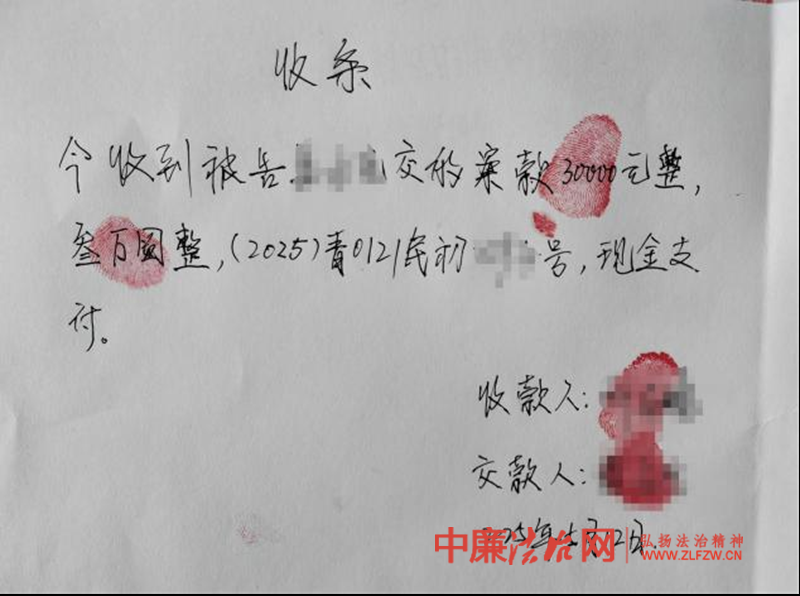 收条
今收到被告交的案款30000元整,
叁万圆整,(2025)青0121民初号,现金支
付。
收款人:
交款人:
中廉法治网
弘扬法治精神
WWW.ZLFZW.CN